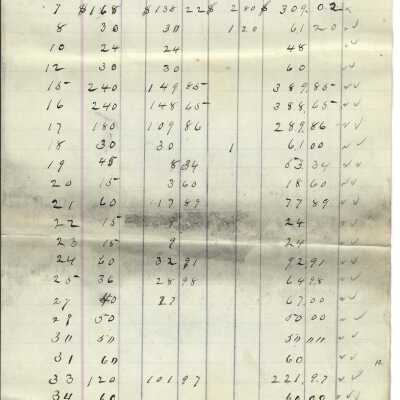 7 $168 $138 22 $ 2 80 $ 309.02
8 30 30 1 20 61 20
10 24 24 48
12 30 30 60
15 240 149 85 389.85
16 240 148 65 388.65
17 180 109 86 289.86
18 30 30 1 61 00
19 45 8 34 53.34
20 15 3 60 18 60
21 60 17 89 77 89
22 15 9 24
23 15 9 24
24 60 32 91 92.91
25 36 28 98 64.98
27 40 27 67.00
28 50 50 00
30 50 50 00
31 60 60
33 120 101 97 221.97
34 60 60 00